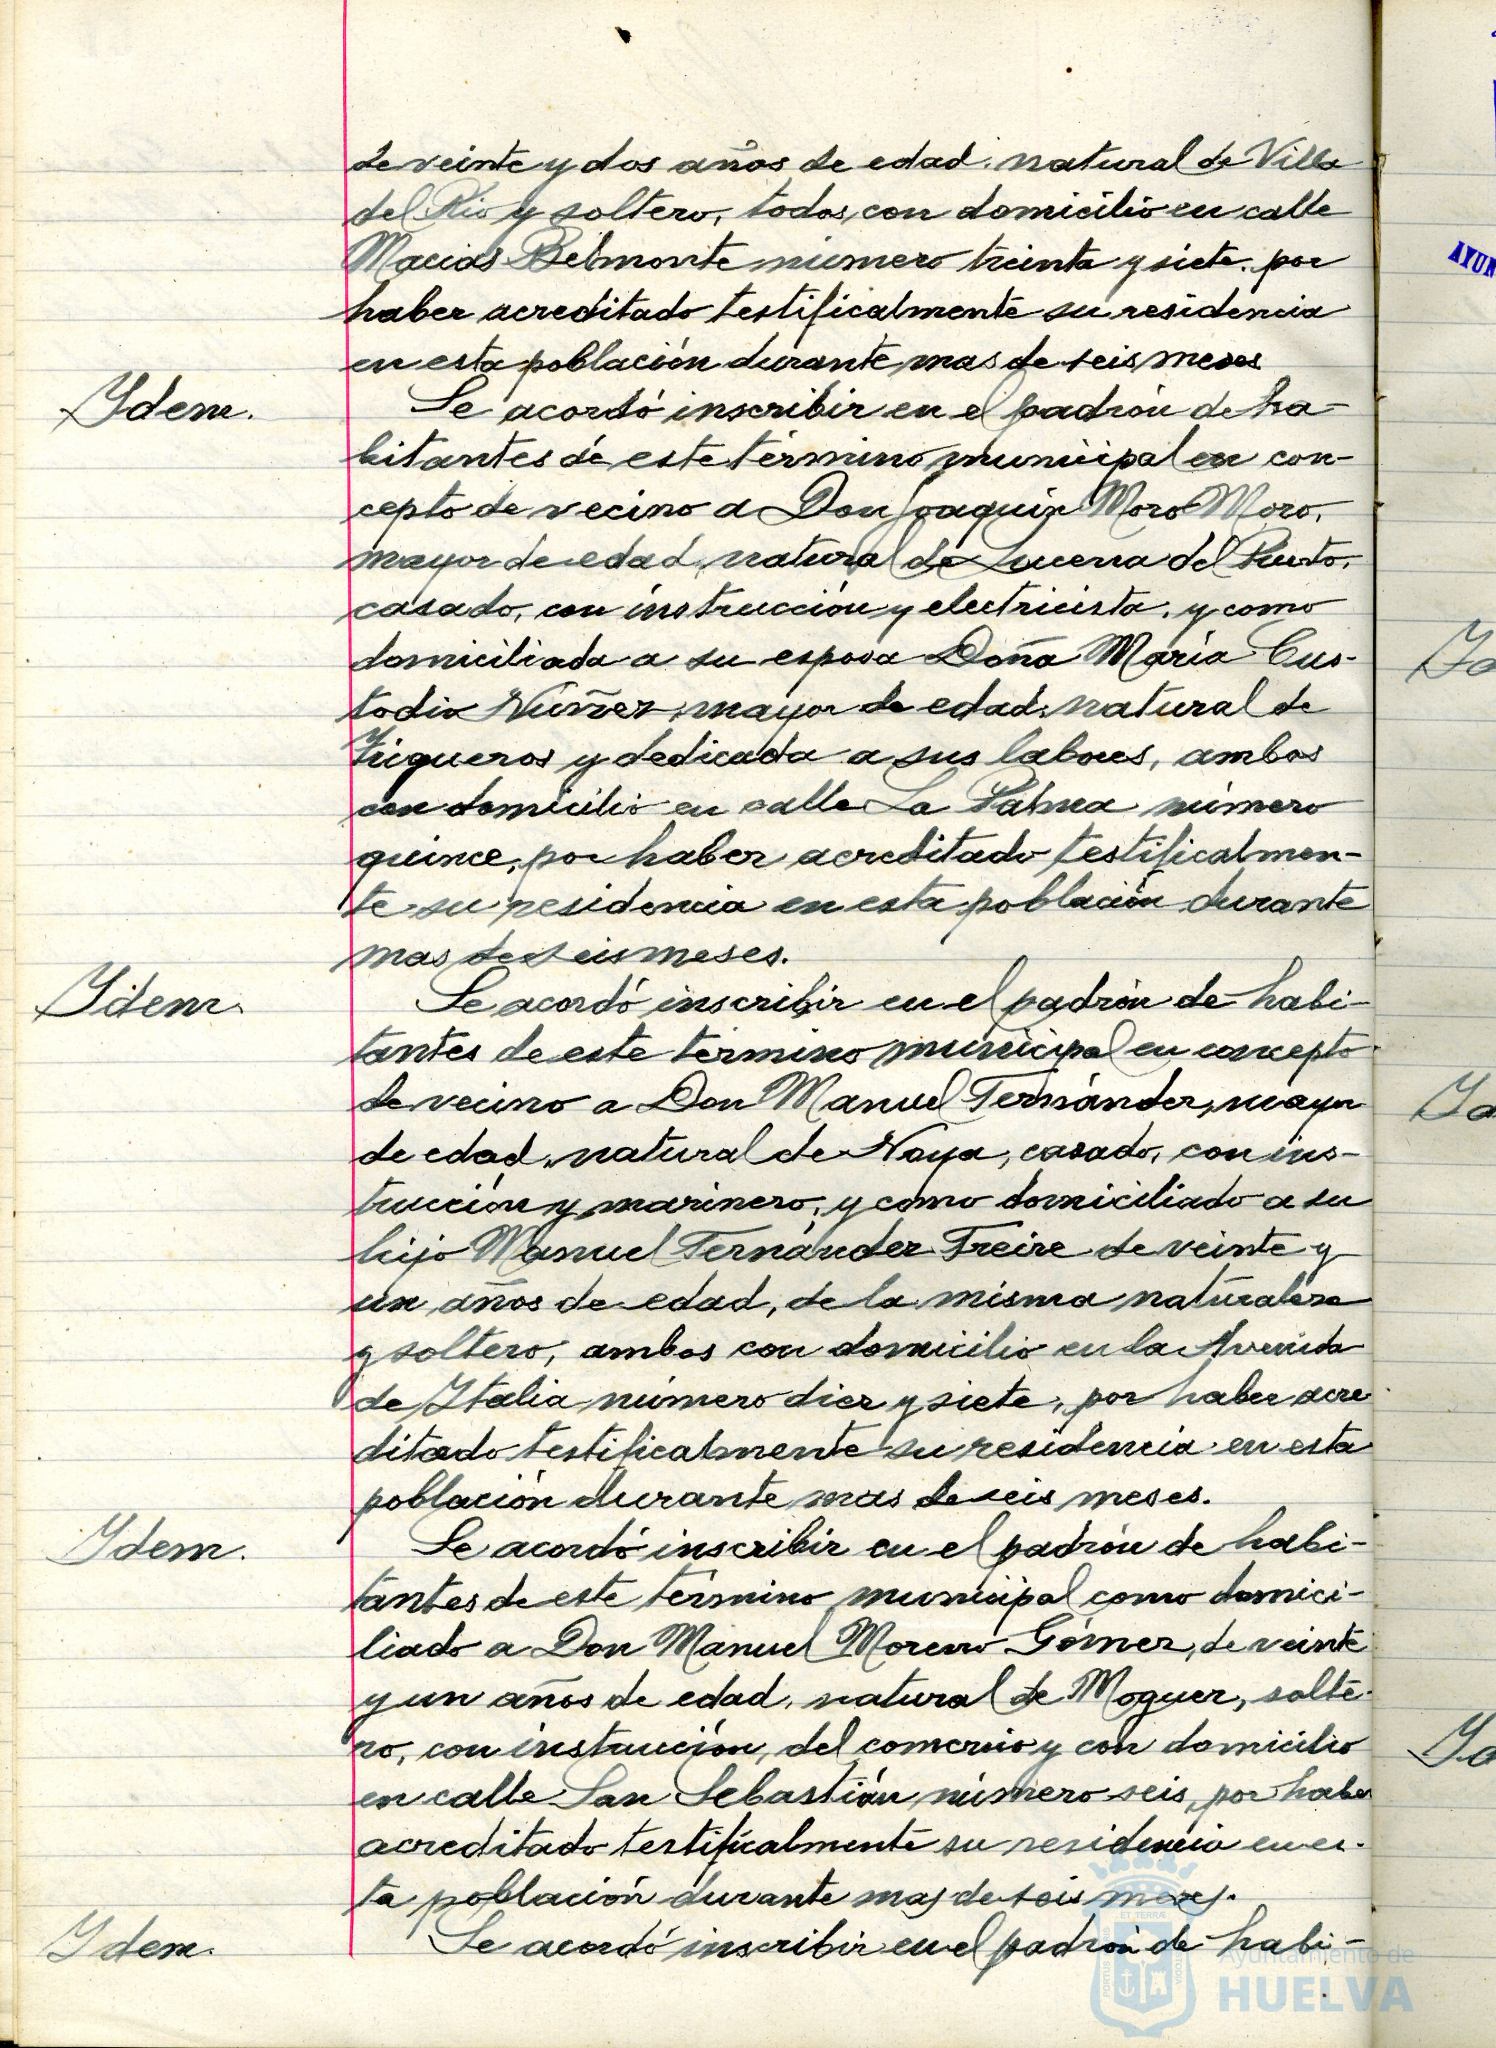 de veinte y dos años de edad, natural de Villa
del Rio y soltero, todos con domicilio en calle
Macias Belmonte número treinta y siete, por
haber acreditado testificalmente su residencia
en esta población durante mas de seis meses
Ydem. Se acordó inscribir en el padrón de ha-
bitantes de este término municipal en con-
cepto de vecino a Don Joaquin Moro Moro,
mayor de edad, natural de Lucena del Puerto,
casado, con instrucción y electricista, y como
domiciliada a su esposa Doña María Cus-
todio Núñez, mayor de edad, natural de
Trigueros y dedicada a sus labores, ambos
con domicilio en calle La Palma número
quince, por haber acreditado testificalmen-
te su residencia en esta población durante
mas de seis meses.
Ydem. Se acordó inscribir en el padrón de habi-
tantes de este término municipal en concepto
de vecino a Don Manuel Fernández, mayor
de edad, natural de Noya, casado, con ins-
trucción y marinero, y como domiciliado a su
hijo Manuel Fernández Freire de veinte y
un años de edad, de la misma naturaleza
y soltero, ambos con domicilio en la Avenida
de Italia número diez y siete, por haber acre
ditado testificalmente su residencia en esta
población durante mas de seis meses.
Ydem. Se acordó inscribir en el padrón de habi-
tantes de este término municipal como domici-
liado a Don Manuel Moreno Gómez, de veinte
y un años de edad, natural de Moguer, solte-
ro, con instrucción, del comercio y con domicilio
en calle San Sebastián, número seis, por haber
acreditado testificalmente su residencia en es-
ta población durante mas de seis meses.
Ydem. Se acordó inscribir en el padrón de habi-
AYUN
Yd
Yd
Yd
ET TERRÆ
PORTUS
CUSTODIA
Ayuntamiento de
HUELVA